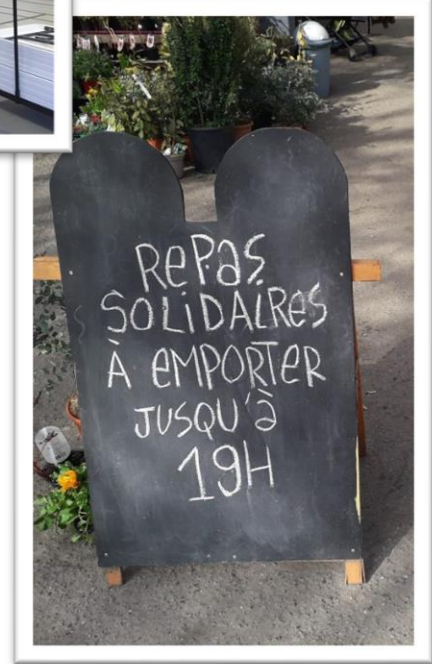 RePas
SOLiDAIRes
À eMPORTeR
JUSQU'à
19H